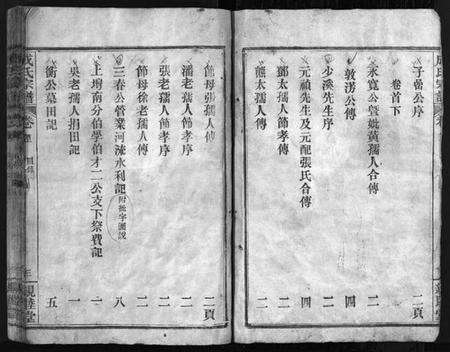 子嵒公序 二頁
卷首下
永寬公暨妣黃孺人合傳 二
敦澇公傳 二
少溪先生序 四
元禎先生及元配張氏合傳 四
鄧太孺人節孝傳 二
熊太孺人傳 二
成氏宗譜 卷
節母張孺人傳 二頁
潘老孺人節孝序 二
張老孺人節孝序 二
節母徐老孺人傳 二
三春公管業河涂水利記 附批字圖說 八
上增南分伯學伯才二公支下祭費記 一
吳老孺人捐田記 一
衡公墓田記 五